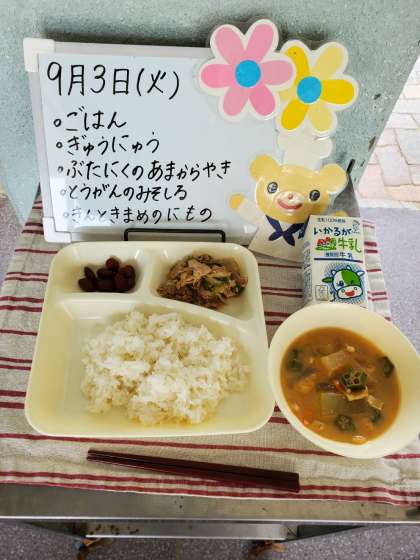 9月3日(火)
•ごはん
•ぎゅうにゅう
•ぶたにくのあまからやき
•とうがんのみそしる
•きんときまめのにもの
いかるが
牛乳